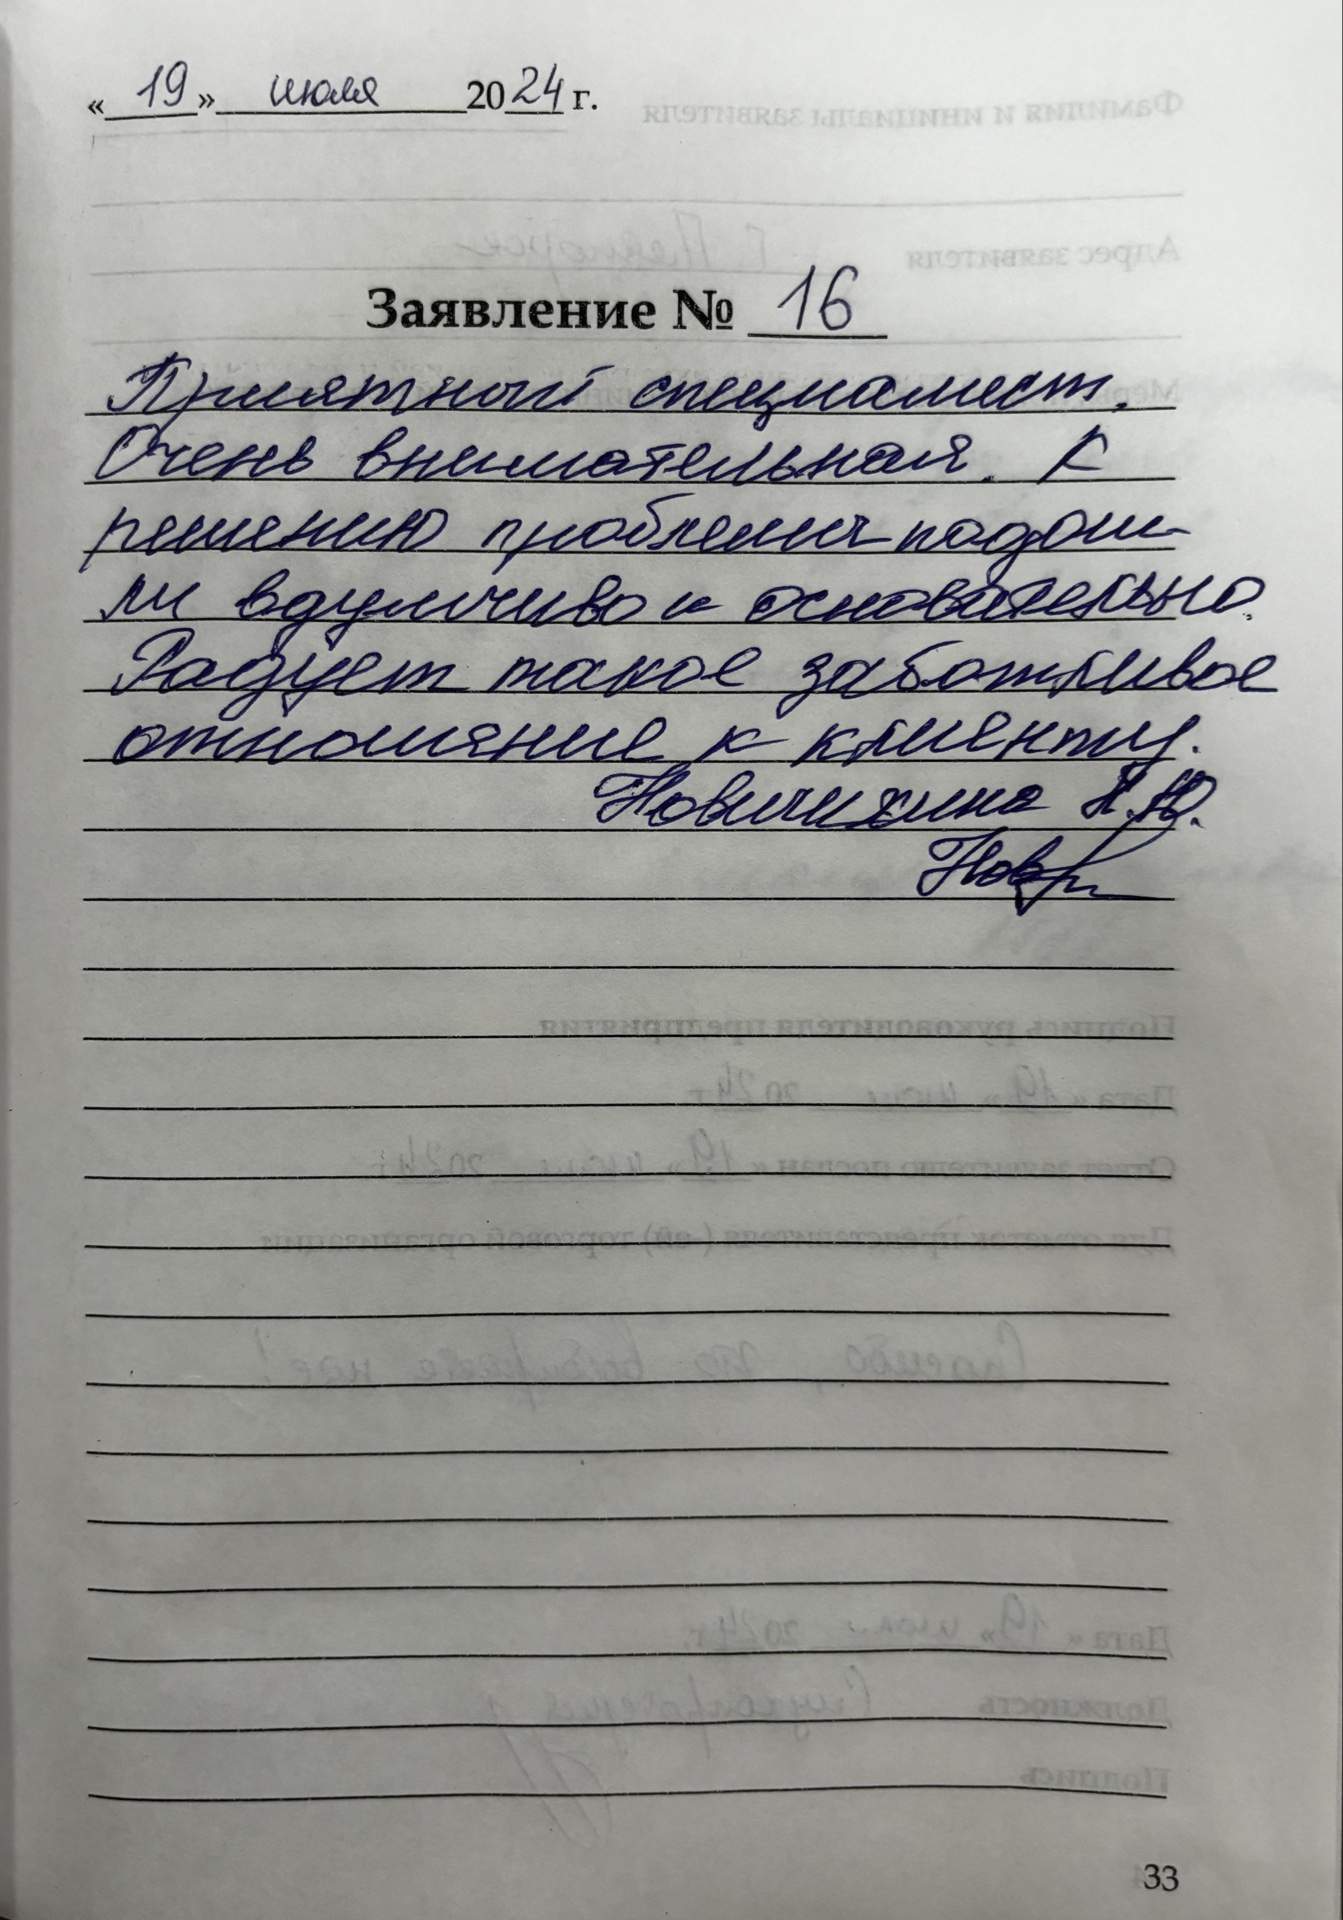 «19» июля 2024 г.
Заявление № 16
Приятный специалист.
Очень внимательная. К
решению проблемы подош-
ли вдумчиво и основательно.
Радует такое заботливое
отношение к клиенту.
Новичихина Н.Ю.
33